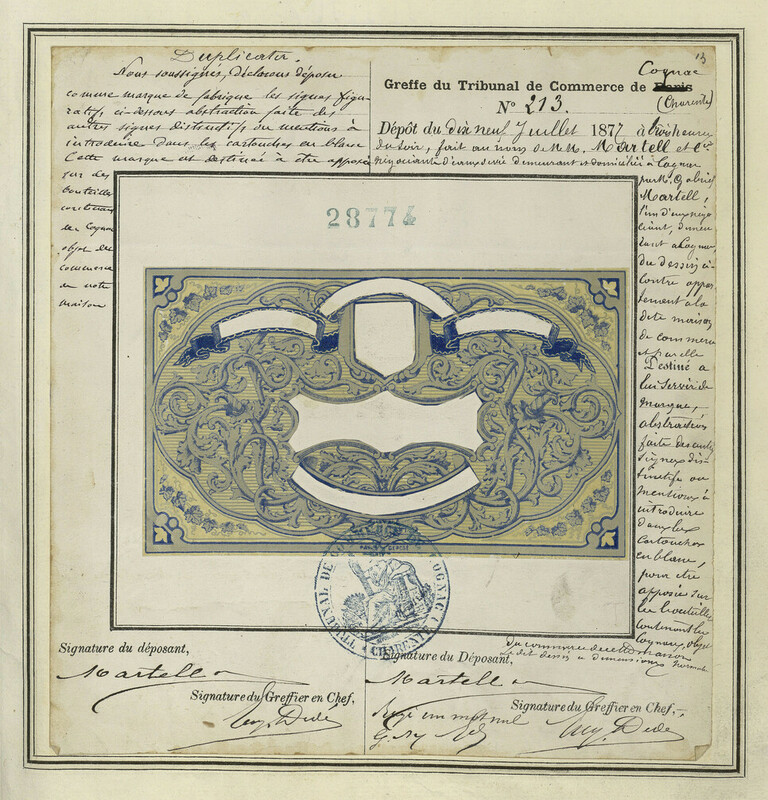 Duplicata.
Nous soussignés, déclarons déposer
comme marque de fabrique les signes figu-
ratifs, ci-dessous abstraction faite des
autres signes distinctifs, ou mentions à
introduire dans les cartouches en blanc
Cette marque est destinée à être apposée
sur des
bouteilles
contenant
du Cognac
objet du
commerce
de notre
maison
13
Greffe du Tribunal de Commerce de Paris
Cognac
(Charente)
N° 213.
Dépôt du dix neuf Juillet 1877 à trois heures
du soir, fait au nom de M.M. Martell et Cie
négociants d'eau de vie demeurant et domiciliés à Cognac
par M. Gabriel
Martell,
l'un d'eux négo-
ciant, demeu-
rant à Cognac
du dessin ci-
contre appar-
tenant à la
dite maison
de commerce
et par elle
Destiné à
lui servir de
marque,
abstraction
faite des autres
signes dis-
tinctifs ou
mentions à
introduire
dans les
cartouches
en blanc,
pour être
apposée sur
les bouteilles
contenant les
Cognacs, objet
du commerce de cette maison
le dit dessin a dimensions normales
28774
TRIBUNAL DE COMMERCE DE COGNAC
(CHARENTE)
Signature du déposant,
Martell
Signature du Greffier en Chef,
Signature du Déposant,
Martell
Signature du Greffier en Chef,